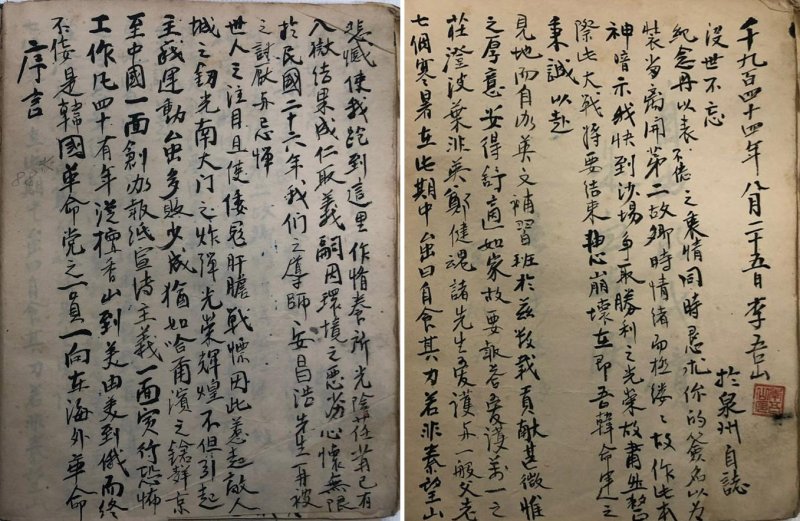 序言
不佞是韓國革命党之一員一向在海外革命
工作凡四十有年從檀香山到美由美到俄而終
至中國一面創办報紙宣傳主義一面實行恐怖
主義運動虽多敗少成猶如哈爾濱之鎗声京
城之釰光南大门之炸彈光榮輝煌不但引起
世人之注目且使倭寇肝膽戰慄因此惹起敵人
之討厭与忌憚
於民國二十六年我們之導師安昌浩先生再被
入獄結果成仁取義嗣因環境之惡劣心懷無限
悲憾使我跑到這里作惰光陰荏苒已有
七個寒暑在此期中虽曰自食其力若非秦望山
莊澄波葉非英鄭健魂諸先生爱護与一般父老
之厚意安得舒適如家故要敢答爱護萬一之
見地而自办英文補習班於兹数载貢献甚微惟
秉誠以赴
際此大戰將要結束軸心崩壞在即吾韓命運之
神暗示我快到沙場争取勝利之光榮故肅然整
装当离開第二故鄉時情緒而極缕々故作此本
紀念冊以表不佞之衷情同時懇求你的簽名以為
没世不忘
千九百四十四年八月二十五日李吾山
於泉州自誌